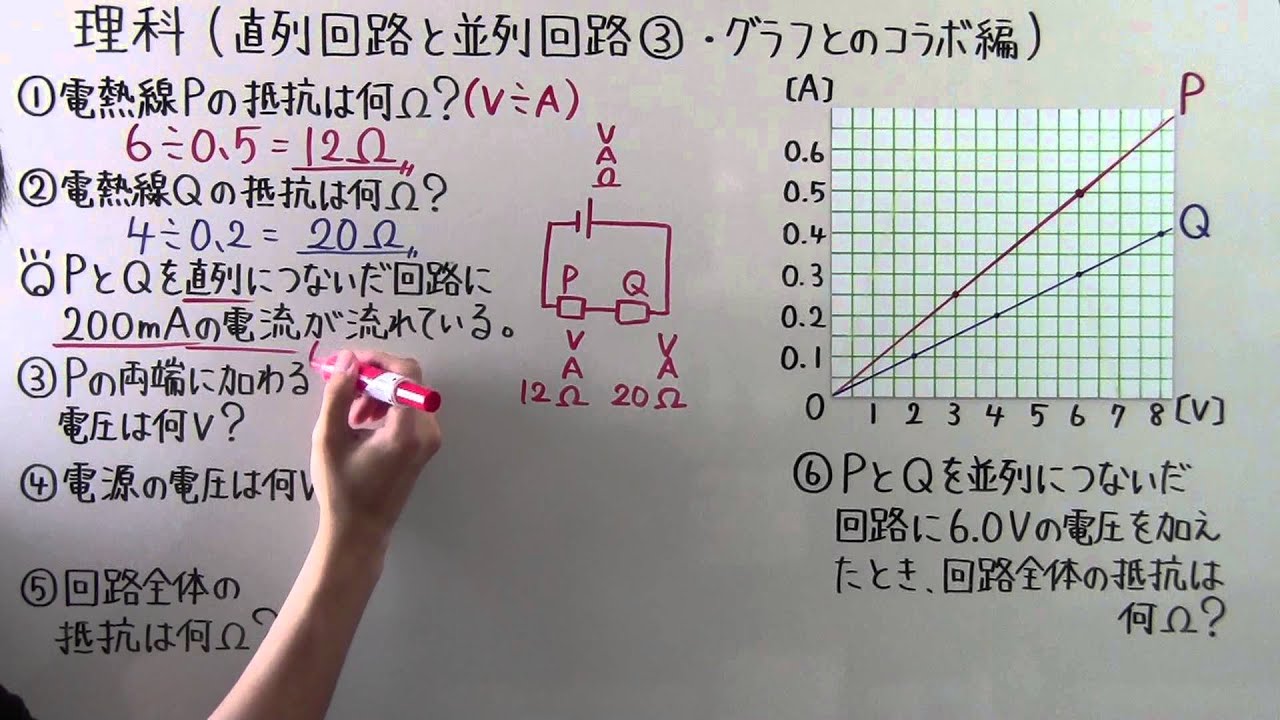 理科(直列回路と並列回路③・グラフとのコラボ編)
①電熱線Pの抵抗は何Ω?(V÷A)
6÷0.5=12Ω〃
②電熱線Qの抵抗は何Ω?
4÷0.2=20Ω〃
PとQを直列につないだ回路に
200mAの電流が流れている。
③Pの両端に加わる
電圧は何V?
④電源の電圧は何V
⑤回路全体の
抵抗は何Ω?
V
A
Ω
P Q
V V
A A
12Ω 20Ω
[A]
P
0.6
0.5
Q
0.4
0.3
0.2
0.1
0 1 2 3 4 5 6 7 8 [V]
⑥PとQを並列につないだ
回路に6.0Vの電圧を加え
たとき、回路全体の抵抗は
何Ω?